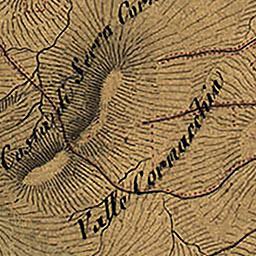 Costa de Serra
Valle Cornacchia